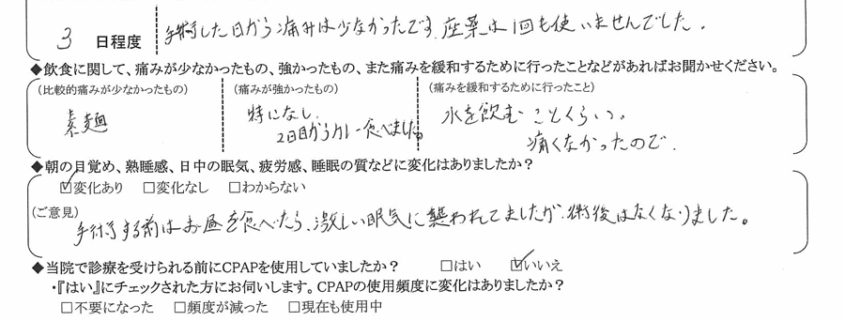 3 日程度 手術した日から痛みは少なかったです。座薬は1回も使いませんでした。
◆飲食に関して、痛みが少なかったもの、強かったもの、また痛みを緩和するために行ったことなどがあればお聞かせください。
(比較的痛みが少なかったもの) (痛みが強かったもの) (痛みを緩和するために行ったこと)
素麺 特になし。 水を飲むことくらい。
2日目からカレー食べました。 痛くなかったので。
◆朝の目覚め、熟睡感、日中の眠気、疲労感、睡眠の質などに変化はありましたか?
☑変化あり □変化なし □わからない
(ご意見)
手術する前はお昼を食べたら、激しい眠気に襲われてましたが、術後はなくなりました。
◆当院で診療を受けられる前にCPAPを使用していましたか? □はい ☑いいえ
・『はい』にチェックされた方にお伺いします。CPAPの使用頻度に変化はありましたか?
□不要になった □頻度が減った □現在も使用中